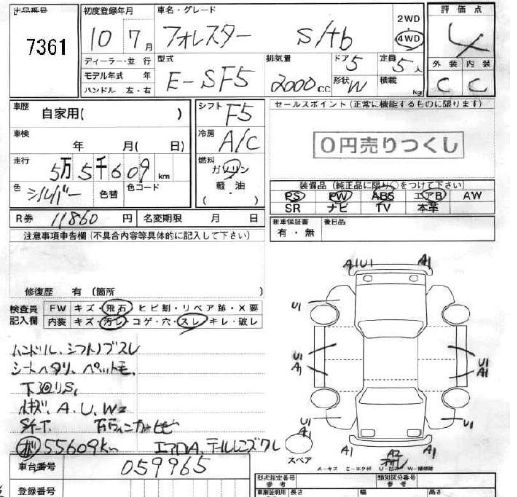 出品番号 7361
初度登録年月 10年 7月
車名・グレード フォレスター S/tb
2WD
4WD
評価点 4
ディーラー・並行
モデル年式 年
ハンドル 左・右
型式 E-SF5
排気量 2000cc
ドア 5
形状 W
定員 5人
積載 kg
外装 C
内装 C
車歴 自家用( )
シフト F5
車検 年 月( 日)
冷房 A/C
走行 5万5千609km
燃料 ガソリン
軽油
色 シルバー 色替 色コード
R券 11860円 名変期限 月 日
セールスポイント(正常に機能するものに限ります)
0円売りつくし
装備品(純正品に限り○をつけて下さい)
PS PW ABS エアB AW
SR ナビ TV 本革
新車保証書 有・無
後日品
注意事項申告欄(不具合内容等具体的に記入して下さい)
修復歴 有(箇所
検査員記入欄
FW キズ・飛石・ヒビ割・リペア跡・X要
内装 キズ・汚レ・コゲ・穴・スレ・キレ・破レ
ハンドル、シフトノブスレ
シートヘタリ、ペットモ、
下廻りS,
A.U.W2
55609km エアDA,テールレンズワレ
車台番号 059965
登録番号
A1U1 A1
U1 U1
U1 A1
U1 A1
U1
A1 A2 A1
スペア
A-キズ
型式指定番号 参考
類別区分番号 参考
長さ 幅 高さ